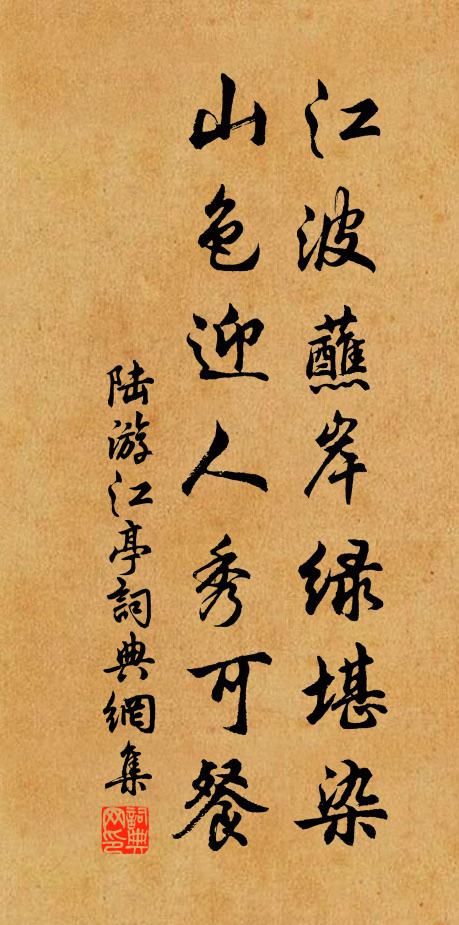 江波蘸岸绿堪染
山色迎人秀可餐
陆游江亭詞典網集
詞典
网印